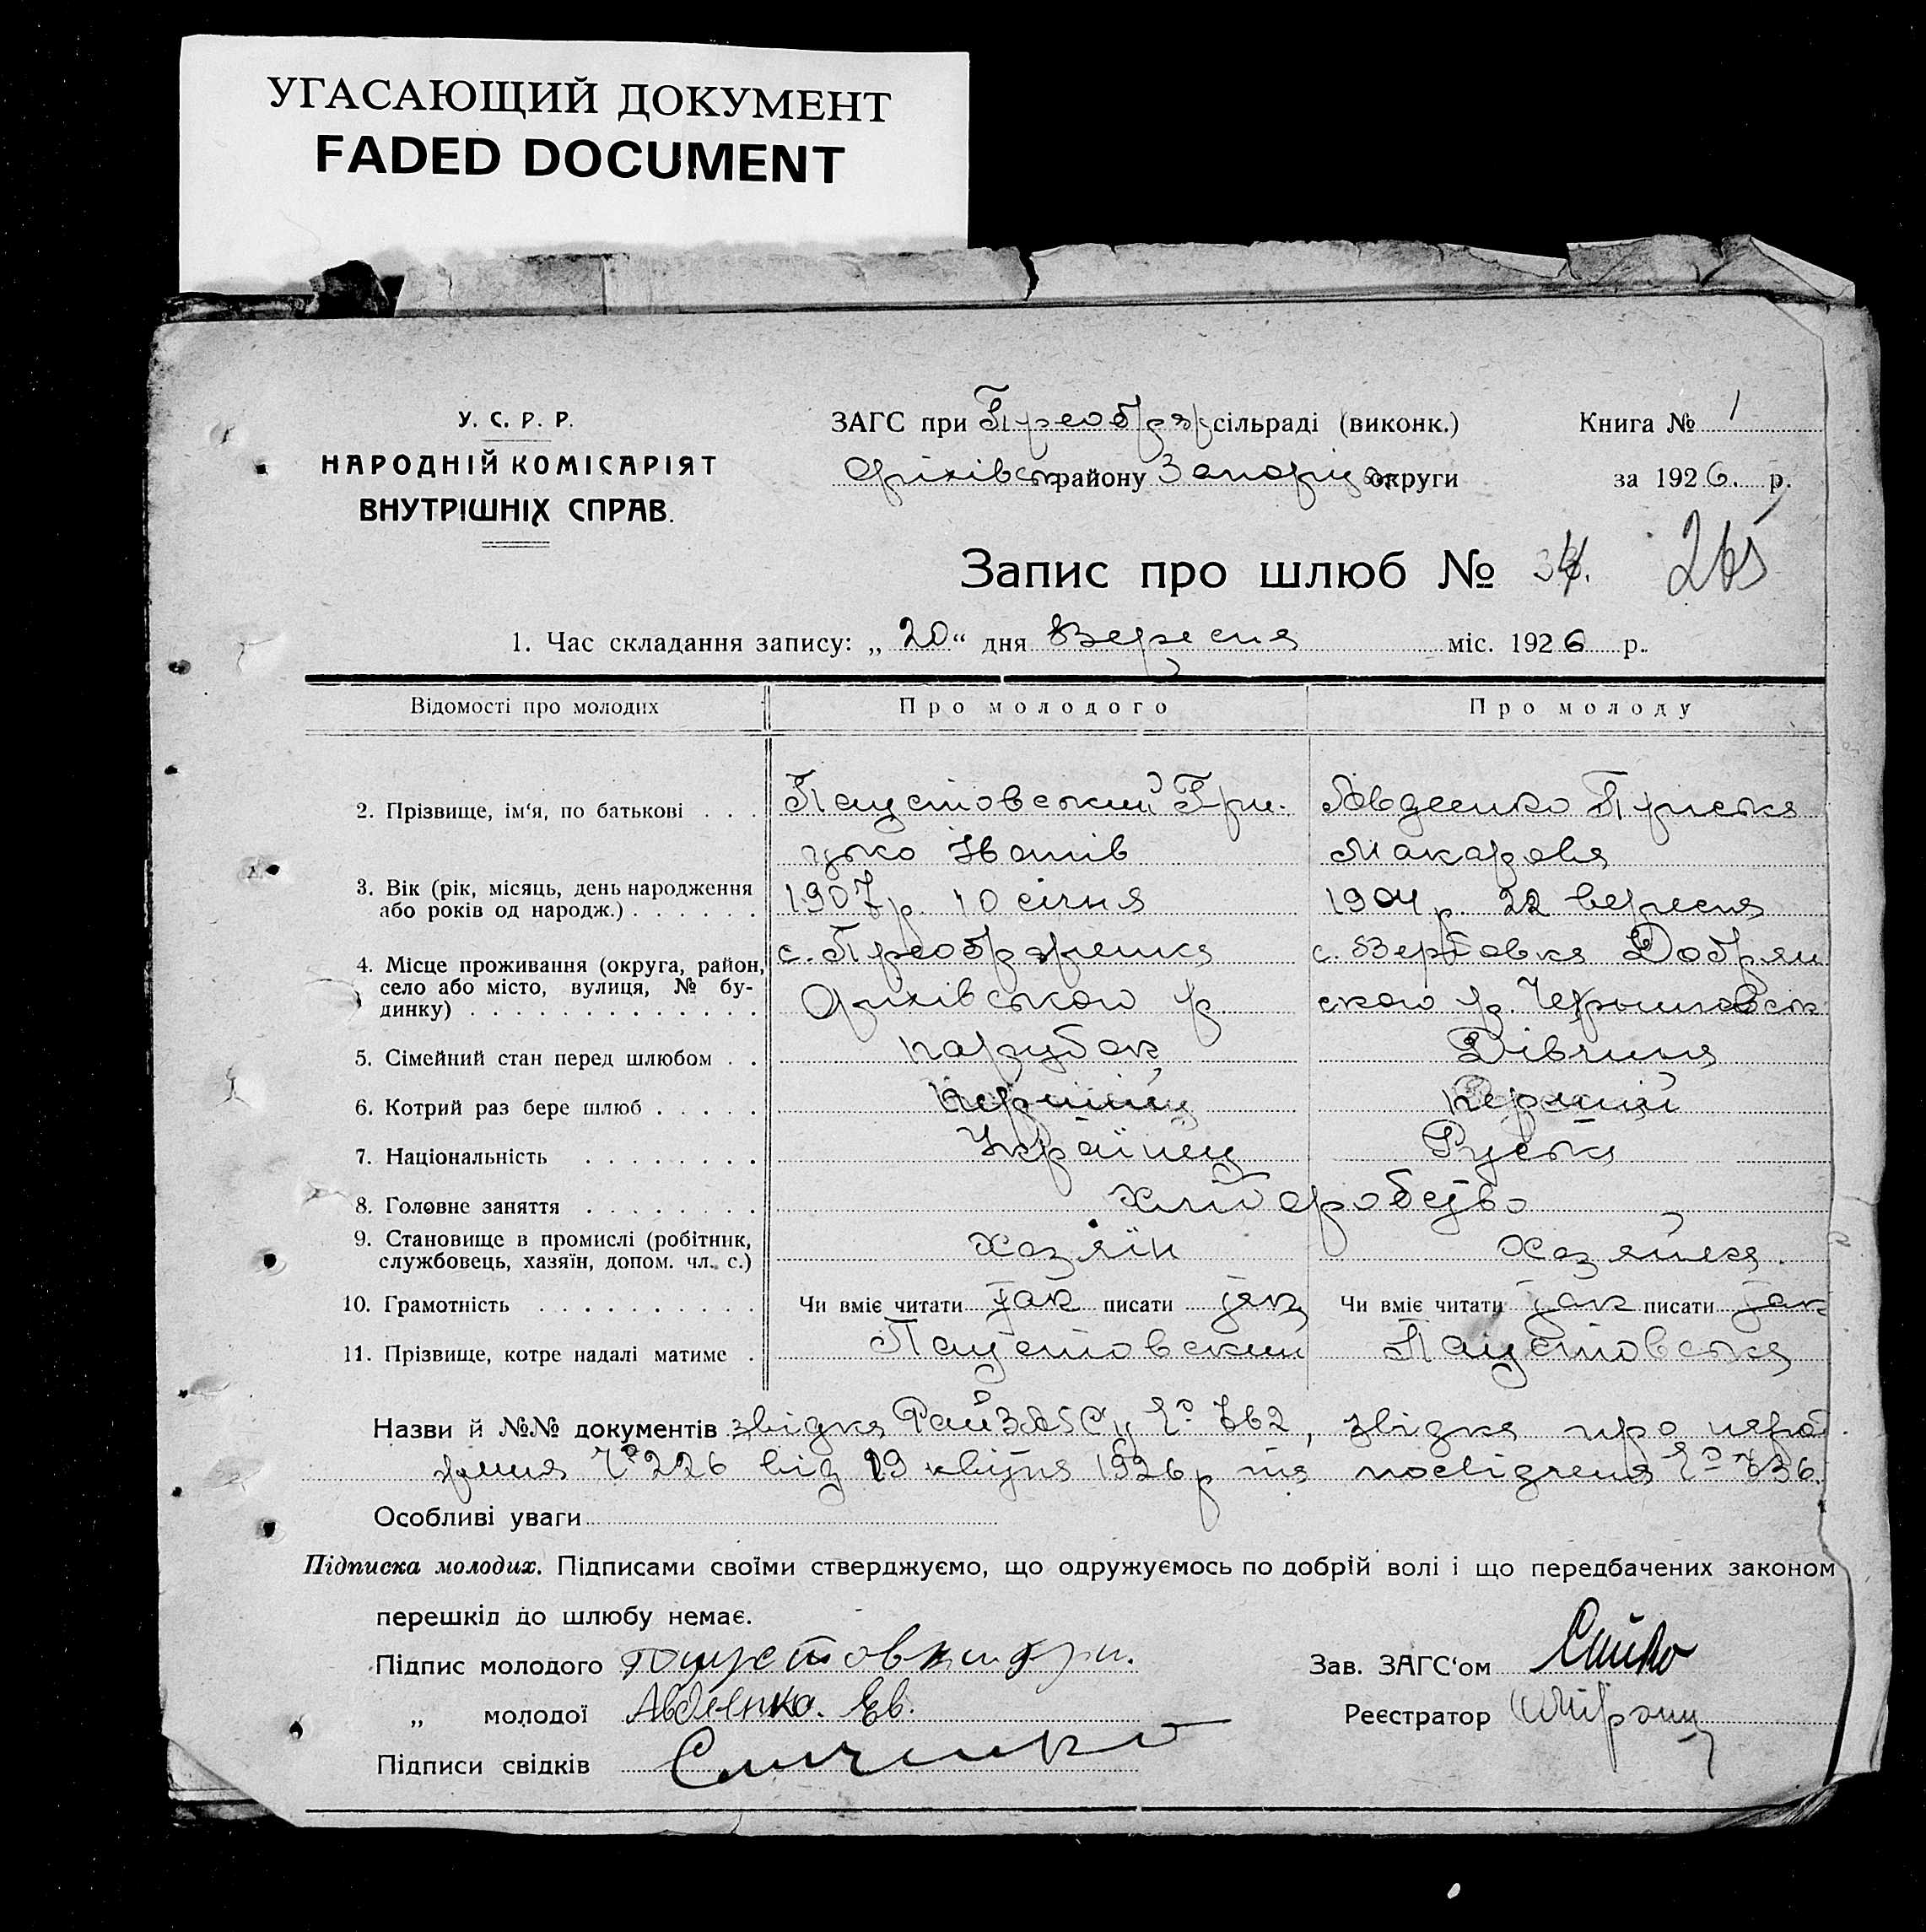 УГАСАЮЩИЙ ДОКУМЕНТ
FADED DOCUMENT
У. С. Р. Р.
НАРОДНІЙ КОМІСАРІЯТ
ВНУТРІШНІХ СПРАВ.
ЗАГС при Преображ сільраді (виконк.)
Оріхівськ району Запоріз округи
Книга № 1
за 1926. р.
Запис про шлюб №
1. Час складання запису: „ 20 “ дня Вересня міс. 1926 р.
Відомості про молодих Про молодого Про молоду
2. Прізвище, ім‘я, по батькові . . . Паустовський Гри- Авдеенко Приська
цько Іванів Макаровя
3. Вік (рік, місяць, день народження 1907 р. 10 січня 1904 р. 22 вересня
або років од народж.) . . . . . .
4. Місце проживання (округа, район, с. Преображенка с. Вербовка Добрян
село або місто, вулиця, № бу- Оріхівського р. ского р. Черниговськ
динку) . . . . . . . . . . . . .
5. Сімейний стан перед шлюбом . . парубок Дівчина
6. Котрий раз бере шлюб . . . . . Перший Перший
7. Національність . . . . . . . . Українец Руська
8. Головне заняття . . . . . . . . хліборобство
9. Становище в промислі (робітник, хазяїн хазяйка
службовець, хазяїн, допом. чл. с.)
10. Грамотність . . . . . . . . . . Чи вміє читати так писати так Чи вміє читати так писати так
11. Прізвище, котре надалі матиме . Паустовский Паустовська
Назви й №№ документів звідка РайЗАГСу № , звідка про народ
ження № 226 від 19 квітня 1926 р та посвідченя №
Особливі уваги
Підписка молодих. Підписами своїми стверджуємо, що одружуємось по добрій волі і що передбачених законом
перешкід до шлюбу немає.
Підпис молодого Зав. ЗАГС‘ом
„ молодої Авдеенко. Ев. Реєстратор
Підписи свідків